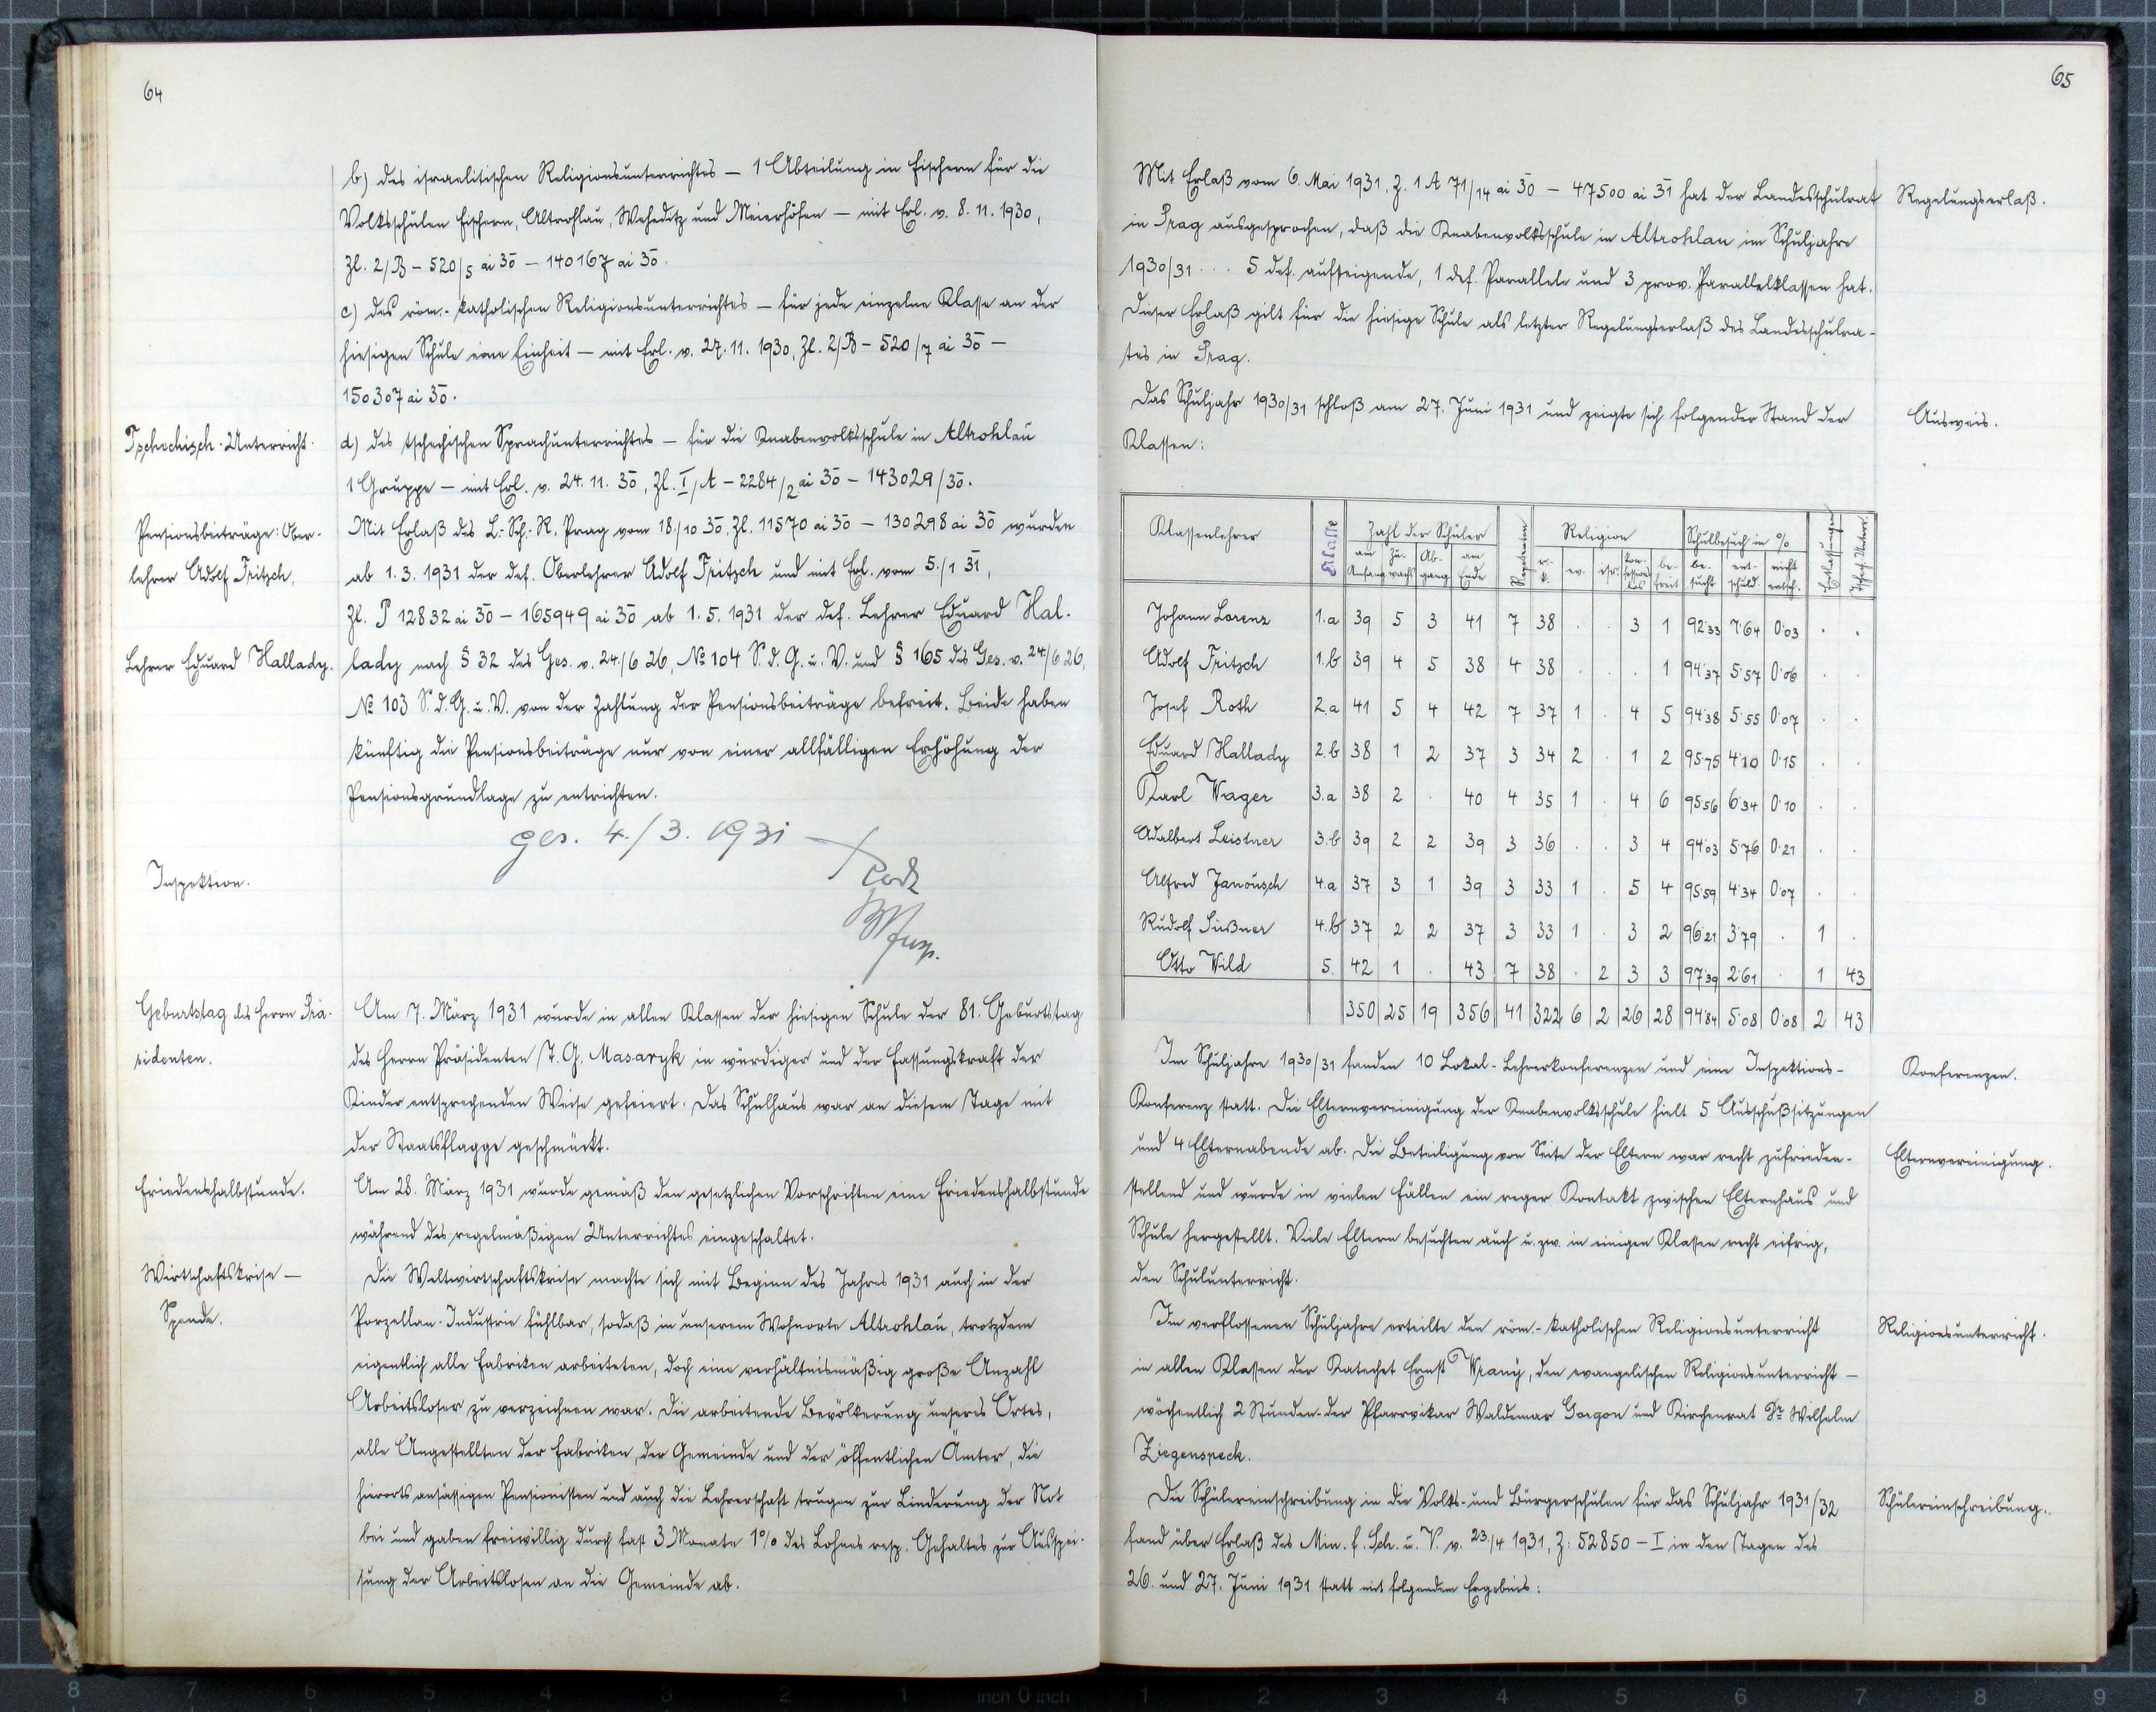 64
b) des israelitischen Religionsunterrichtes — 1 Abteilung in Fischern für die
Volksschulen Fischern, Altrohlau, Weheditz und Meierhöfen — mit Erl. v. 8. 11. 1930,
Zl. 2/B – 520/5 ai 30 – 140167 ai 30.
c) des röm.-katholischen Religionsunterrichtes — für jede einzelne Klasse an der
hiesigen Schule eine Einheit — mit Erl. v. 27. 11. 1930, Zl. 2/B – 520/7 ai 30 –
150307 ai 30.
Tschechisch-Unterricht.
d) des tschechischen Sprachunterrichtes — für die Knabenvolksschule in Altrohlau
1 Gruppe — mit Erl. v. 24. 11. 30, Zl. I/A – 2284/2 ai 30 – 143029/30.
Pensionsbeiträge: Ober-
lehrer Adolf Fritsch,
Mit Erlaß des L.-Sch.-R. Prag vom 18./10 30, Zl. 11570 ai 30 – 130298 ai 30 wurden
ab 1. 3. 1931 der def. Oberlehrer Adolf Fritzsch und mit Erl. vom 5./1 31,
Zl. P 12832 ai 30 – 165949 ai 30 ab 1. 5. 1931 der def. Lehrer Eduard Hal-
Lehrer Eduard Hallady.
lady nach § 32 des Ges. v. 24./6 26, № 104 S. d. G. u. V. und § 165 des Ges. v. 24/6 26,
№ 103 S. d. G. u. V. von der Zahlung der Pensionsbeiträge befreit. Beide haben
künftig die Pensionsbeiträge nur von einer allfälligen Erhöhung der
Pensionsgrundlage zu entrichten.
Inspektion.
ges. 4./3. 1931
Geburtstag des Herrn Prä-
sidenten.
Am 7. März 1931 wurde in allen Klassen der hiesigen Schule der 81. Geburtstag
des Herrn Präsidenten T. G. Masaryk in würdiger und der Fassungskraft der
Kinder entsprechenden Weise gefeiert. Das Schulhaus war an diesem Tage mit
der Staatsflagge geschmückt.
Friedenshalbstunde.
Am 28. März 1931 wurde gemäß den gesetzlichen Vorschriften eine Friedenshalbstunde
während des regelmäßigen Unterrichtes eingeschaltet.
Wirtschaftskrise —
Spende.
Die Weltwirtschaftskrise machte sich mit Beginn des Jahres 1931 auch in der
Porzellan-Industrie fühlbar, sodaß in unserem Wohnorte Altrohlau, trotzdem
eigentlich alle Fabriken arbeiteten, doch eine verhältnismäßig große Anzahl
Arbeitsloser zu verzeichnen war. Die arbeitende Bevölkerung unseres Ortes,
alle Angestellten der Fabriken, der Gemeinde und der öffentlichen Ämter, die
hierorts ansässigen Pensionisten und auch die Lehrerschaft trugen zur Linderung der Not
bei und gaben freiwillig durch fast 3 Monate 1% des Lohnes resp. Gehaltes zur Ausspei-
sung der Arbeitslosen an die Gemeinde ab.
65
Mit Erlaß vom 6. Mai 1931, Z. 1 A 71/14 ai 30 – 47500 ai 31 hat der Landesschulrat
Regelungserlaß.
in Prag ausgesprochen, daß die Knabenvolksschule in Altrohlau im Schuljahre
1930/31 ... 5 def. aufsteigende, 1 def. Parallele und 3 prov. Parallelklassen hat.
Dieser Erlaß gilt für die hiesige Schule als letzter Regelungserlaß des Landesschulra-
tes in Prag.
Das Schuljahr 1930/31 schloß am 27. Juni 1931 und zeigte sich folgender Stand der
Ausweis.
Klassen:
Klassenlehrer Klasse Zahl der Schüler Repetenten Religion Schulbesuch in % Entlassungen tschech. Unterr.
am Anfang Zu-wachs Ab-gang am Ende r.-k. ev. isr. kon-fessions-los be-freit be-sucht ent-schuld. nicht entsch.
Johann Lorenz 1.a 39 5 3 41 7 38 . . 3 1 92·33 7·64 0·03 . .
Adolf Fritzsch 1.b 39 4 5 38 4 38 . . . 1 94·37 5·57 0·06 . .
Josef Roth 2.a 41 5 4 42 7 37 1 . 4 5 94·38 5·55 0·07 . .
Eduard Hallady 2.b 38 1 2 37 3 34 2 . 1 2 95·75 4·10 0·15 . .
Karl Wager 3.a 38 2 . 40 4 35 1 . 4 6 95·56 6·34 0·10 . .
Adalbert Leistner 3.b 39 2 2 39 3 36 . . 3 4 94·03 5·76 0·21 . .
Alfred Janousch 4.a 37 3 1 39 3 33 1 . 5 4 95·59 4·34 0·07 . .
Rudolf Süßner 4.b 37 2 2 37 3 33 1 . 3 2 96·21 3·79 . 1 .
Otto Wild 5. 42 1 . 43 7 38 . 2 3 3 97·39 2·61 . 1 43
350 25 19 356 41 322 6 2 26 28 94·84 5·08 0·08 2 43
Im Schuljahre 1930/31 fanden 10 Lokal-Lehrerkonferenzen und eine Inspektions-
Konferenzen.
Konferenz statt. Die Elternvereinigung der Knabenvolksschule hielt 5 Ausschußsitzungen
und 4 Elternabende ab. Die Beteiligung von Seite der Eltern war recht zufrieden-
Elternvereinigung.
stellend und wurde in vielen Fällen ein reger Kontakt zwischen Elternhaus und
Schule hergestellt. Viele Eltern besuchten auch u. zw. in einigen Klassen recht eifrig,
den Schulunterricht.
Im verflossenen Schuljahre erteilte den röm.-katholischen Religionsunterricht
Religionsunterricht.
in allen Klassen der Katechet Ernst Wraný, den evangelischen Religionsunterricht —
wöchentlich 2 Stunden - der Pfarrvikar Waldemar Gorgon und Kirchenrat Dr. Wilhelm
Ziegenspeck.
Die Schülereinschreibung in die Volks- und Bürgerschulen für das Schuljahr 1931/32
Schülereinschreibung.
fand über Erlaß des Min. f. Sch. u. V. v. 23./4 1931, Z: 52850 – I in den Tagen des
26. und 27. Juni 1931 statt mit folgendem Ergebnis:
8 7 6 5 4 3 2 1 inch 0 inch 1 2 3 4 5 6 7 8 9